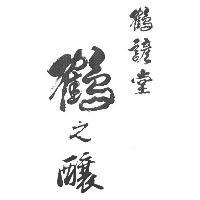 鶴諺堂
鶴之釀